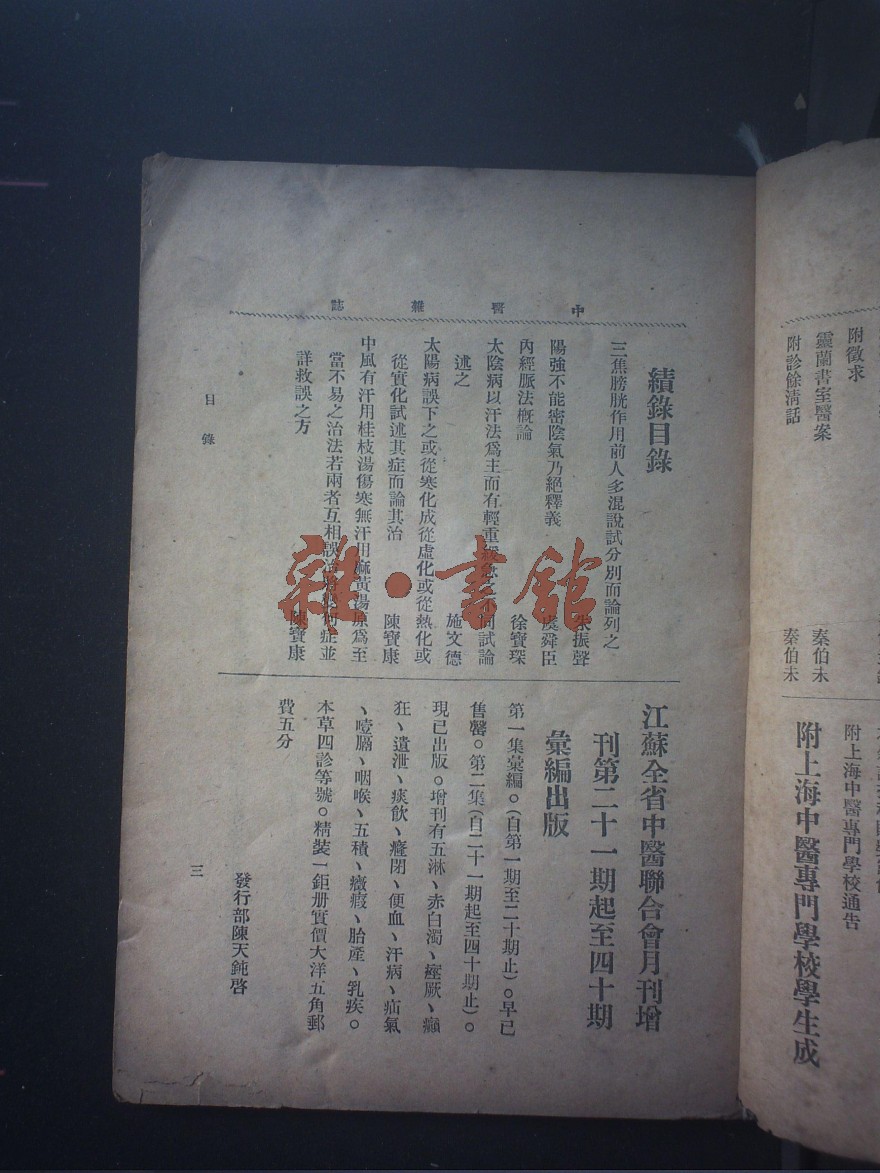 附徵求
靈蘭書室醫案
秦伯未
附診餘淸話
秦伯未
附上海中醫專門學校通告
附上海中醫專門學校學生成
中醫雜誌
績錄目錄
三焦膀胱作用前人多混說試分別而論列之
朱振聲
陽強不能密陰氣乃絕釋義
虞舜臣
內經脈法槪論
徐寶琛
太陰病以汗法爲主而有輕重緩急之不同試論
述之
施文德
太陽病誤下之或從寒化成從虛化或從熱化或
從實化試述其症而論其治
陳寶康
中風有汗用桂枝湯傷寒無汗用麻黃湯原爲至
當不易之治法若兩者互相誤治將變何症並
詳救誤之方
陳寶康
江蘇全省中醫聯合會月刊增
刊第二十一期起至四十期
彙編出版
第一集彙編。(自第一期至二十期止)。早已
售罄。第二集(自二十一期起至四十期止)。
現已出版。增刊有五淋、赤白濁、痙厥、癲
狂、遺泄、痰飲、癃閉、便血、汗病、疝氣
、噎膈、咽喉、五積、癥瘕、胎產、乳疾。
本草四診等號。精裝一鉅册實價大洋五角郵
費五分
發行部陳天鈍啓
目錄
三
雜·書館